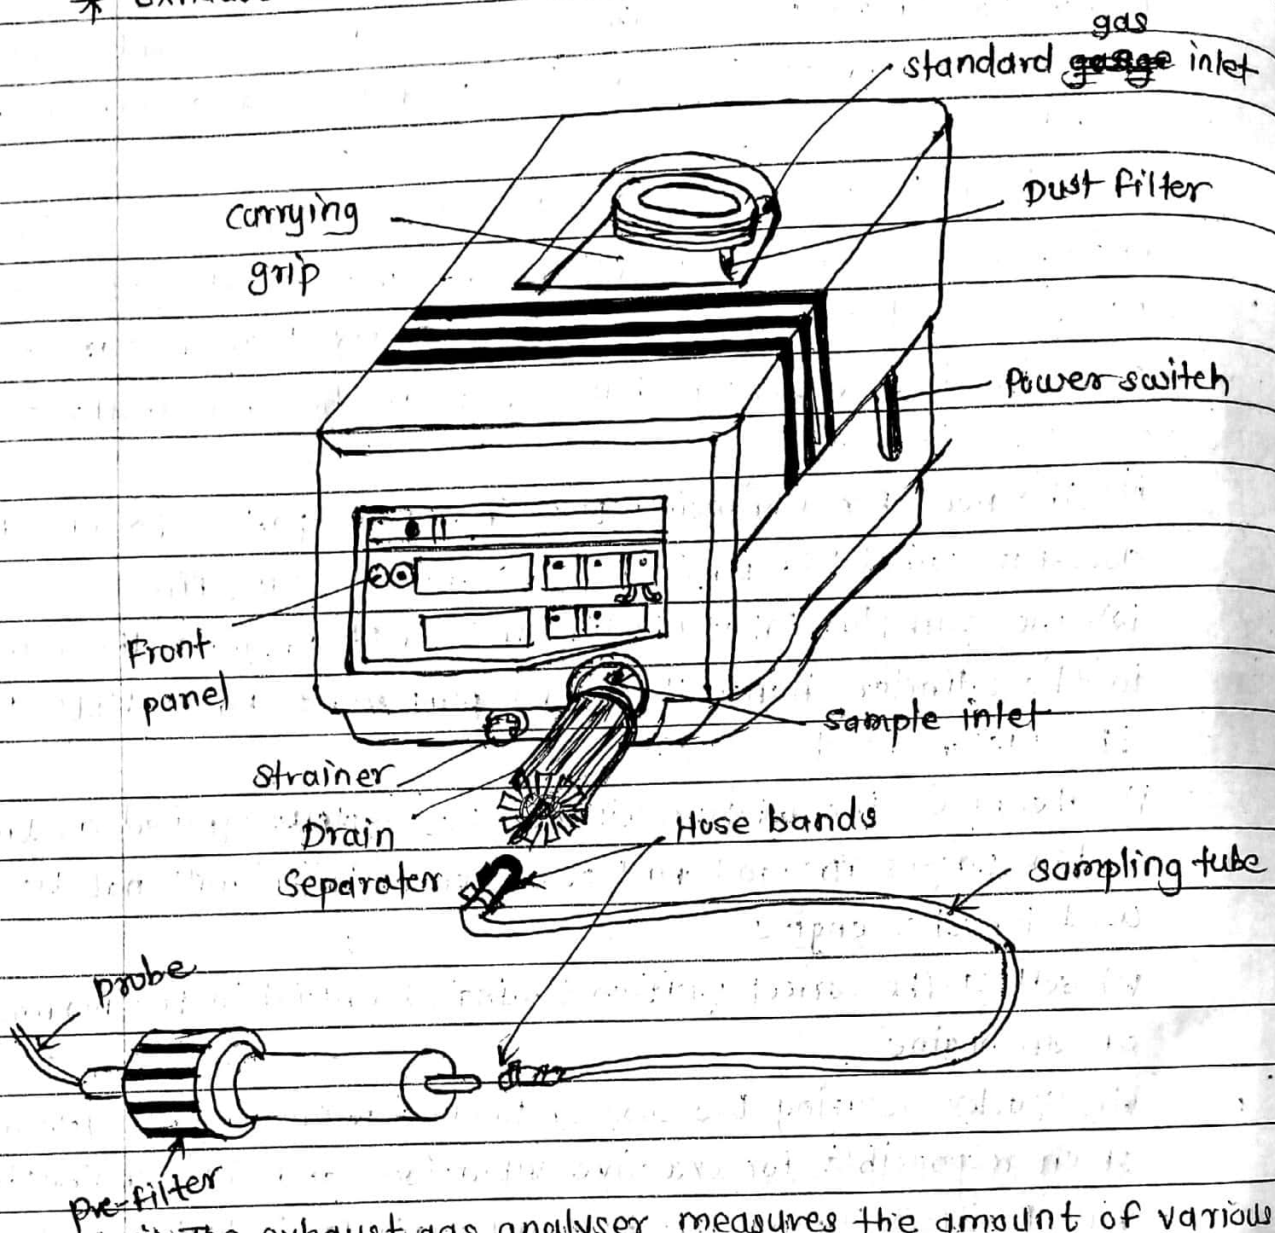 gas
standard inlet
Dust filter
Carrying
grip
Power switch
Front
panel
Sample inlet
Strainer
Drain
Separater
Hose bands
sampling tube
probe
pre-filter
The exhaust gas analyser measures the amount of various